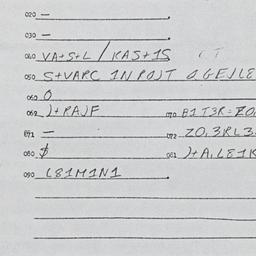 020 —
030 —
060 VA+S+L / KAS+1S
050 S+VAPC 1NPOJT
060 O
062 )+PAJF 170 B1T3R=ZO
071 — 072 ZO,3RL3
080 $ 081 )+A,L81K
090 L81M1N1